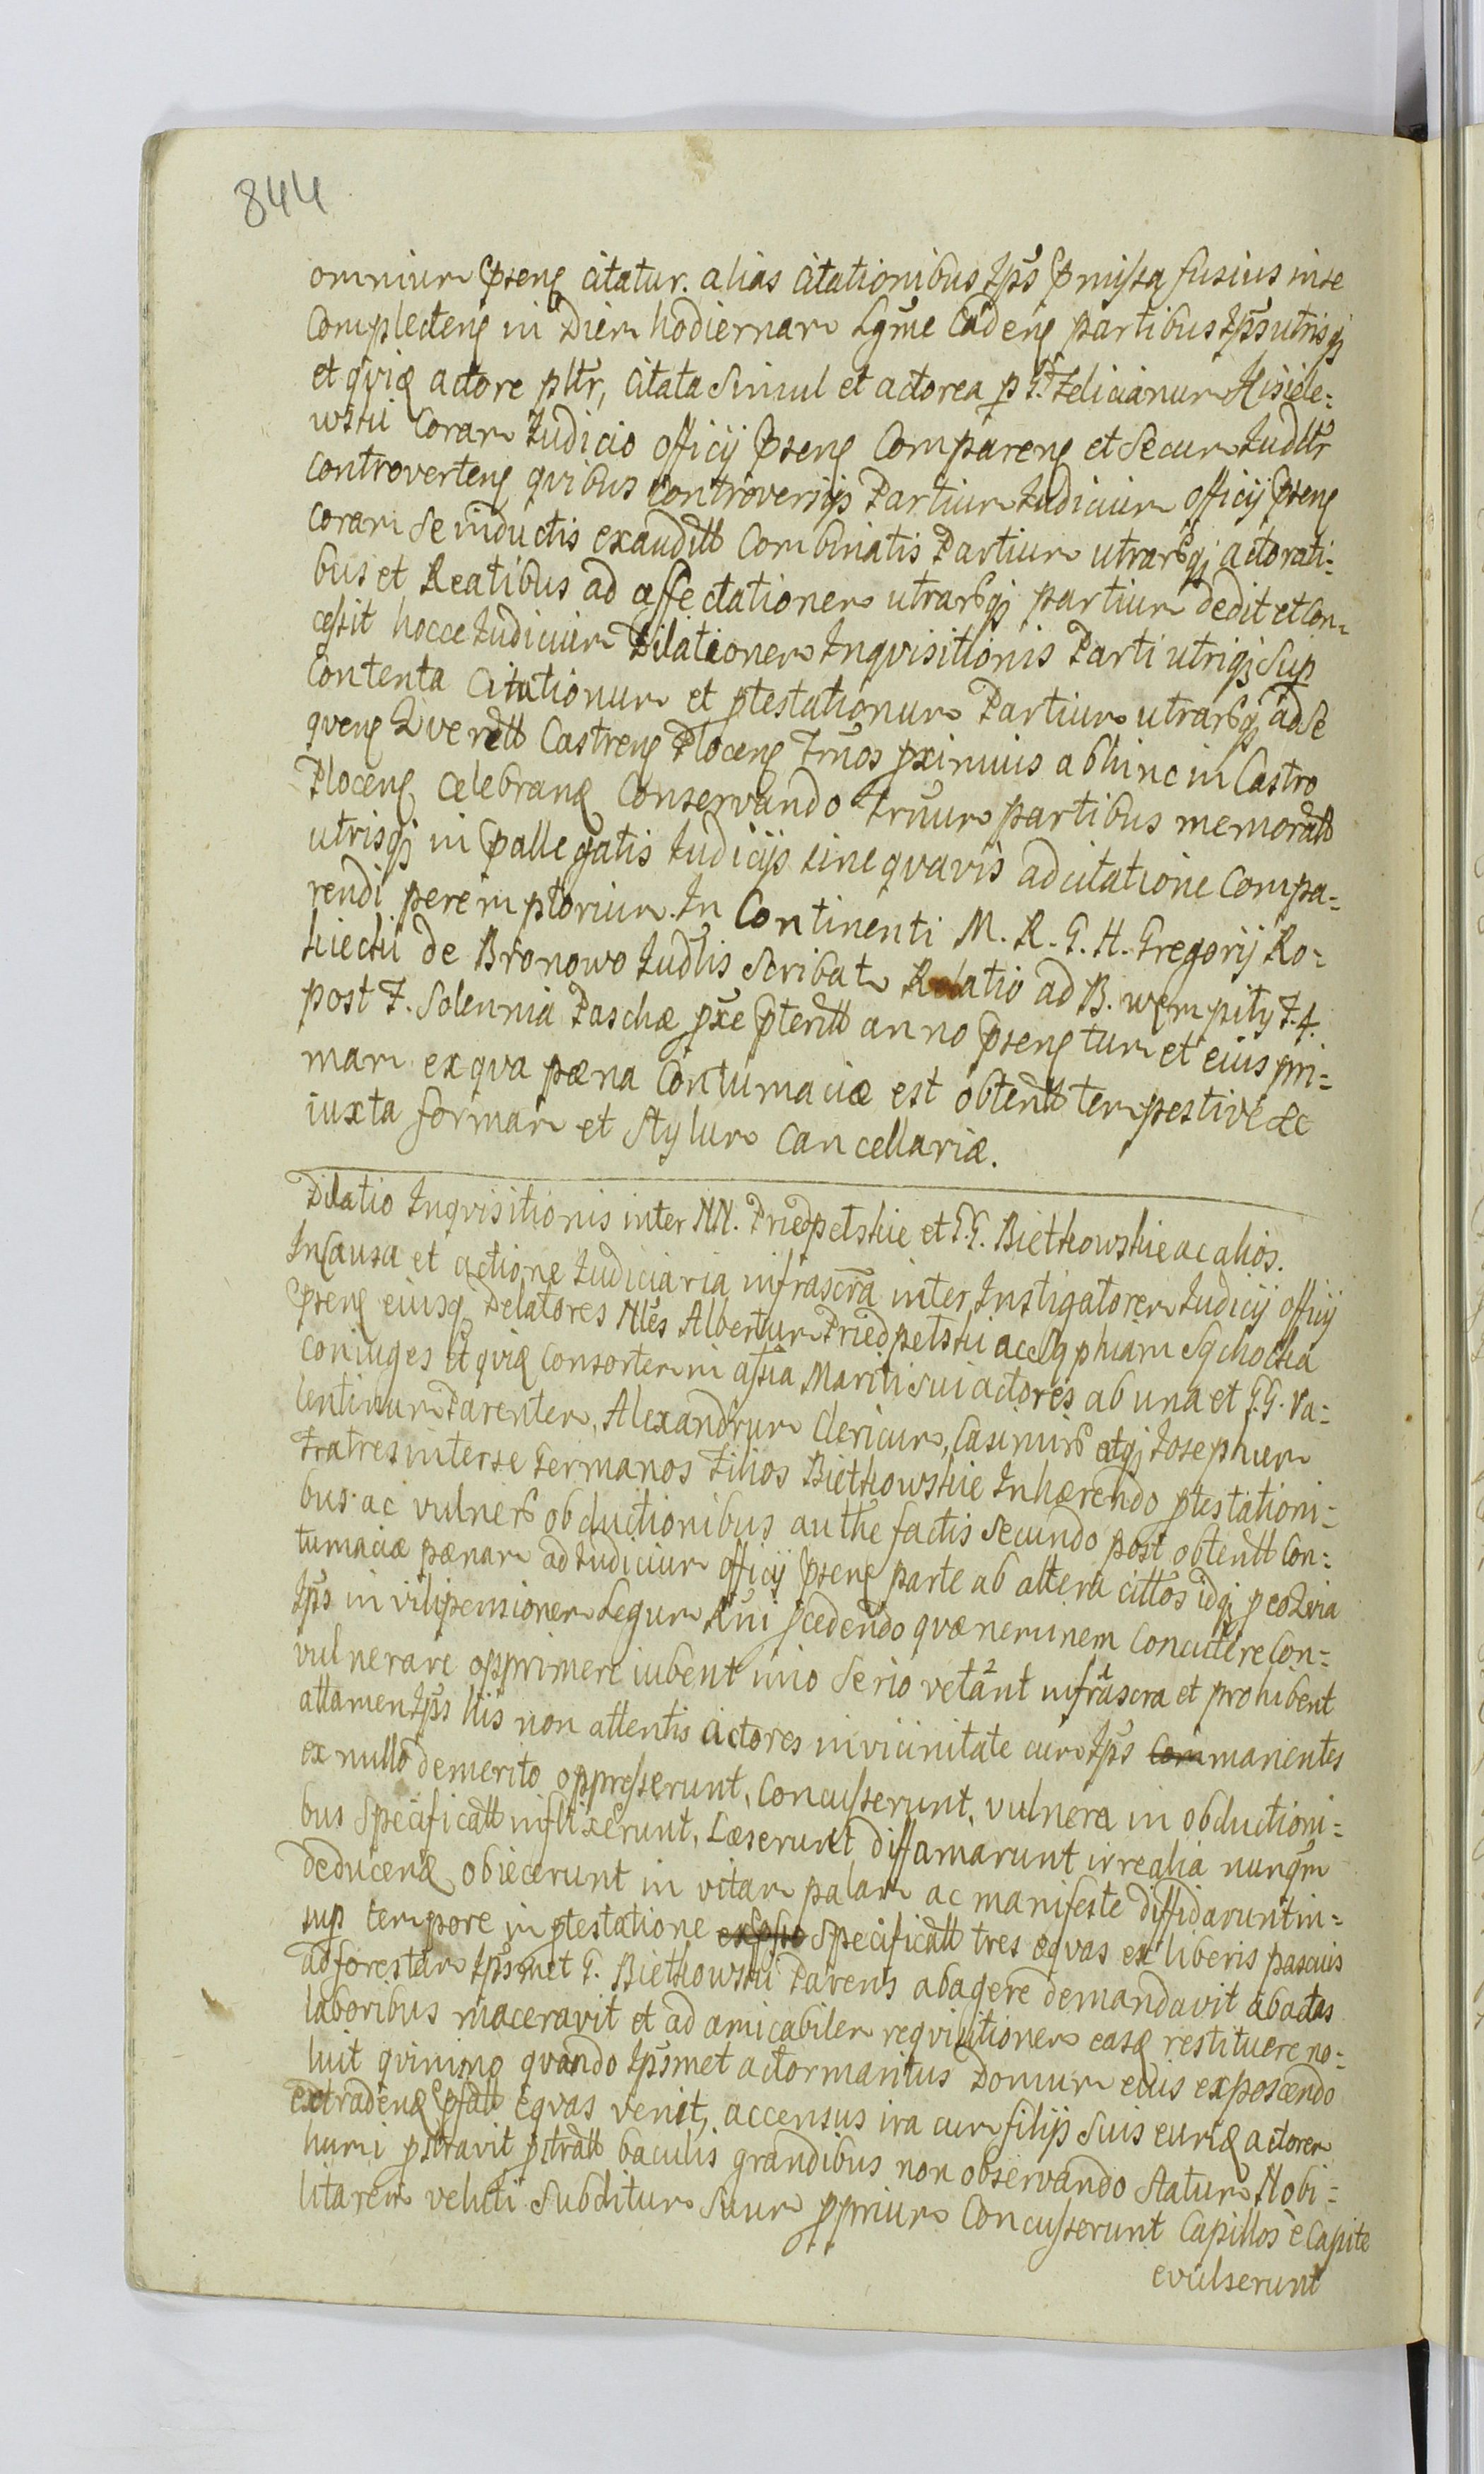 844
omnium pseng citatur. alias citationibus Ips pmissa fusius in se
Complecteng in Diem hodiernam Lgme Cadeng partibus Ips utrisq
et qviq actore pltr, Citata Simul et actorea p G. Felicianum Kisiele=
wski Coram Iudicio officij pseng Compareng et Secum Iudltr
Controverteng qvibus Controversijs Partium Iudicium officij pseng
coram se inductis exauditt Combinatis Partium utrarqj actorati=
bus et Reatibus ad affectationem utrarqj partium dedit et Con=
cessit hocce Iudicium Dilationem Inqvisitionis Parti utriqj Sup
Contenta Citationum et ptestationum Partium utrarqj ad Se
qveng Qverell Castreng Ploceng Trnos pximius abhinc in Castro
Ploceng celebrand Conservando Trnum partibus memoratt
utrisqj in pallegatis Iudicijs sine qvavis adcitatione Compa=
rendi peremptorium. In Continenti M. R. G. H. Gregorij Ro=
kicki de Bronowo Iudlis Scribat Relatio ad B. wempity F. 4.
post F. Solennia Paschæ pxe pteritt anno pseng tum et eius pri=
mam ex qva pœna Contumaciæ est obtentt tempestive &c
iuxta formam et Stylum Cancellariæ.
Dilatio Inqvisitionis inter NN. Priedpetskie et G.G. Bietkowskie ac alios.
In Causa et actione Iudiciaria infrascra inter Instigatorem Iudicij officij
pseng eiusq Delatores Nles Albertum Priedpetski ac Sophiam Sgchocka
Coniuges et qviq Consortem in assia Mariti Sui actores ab una et G.G. Va=
lentinum Parentem, Alexandrum Clericum, Casimir atqj Iosephum
Fratres inter se Germanos Filios Bietkowskie Inhærendo ptestationi=
bus ac vulner obductionibus authe factis Secundo post obtentt Con=
tumaciæ pœnam ad Iudicium officij pseng parte ab altera cittos idqj p eo Qvia
Ips in vilipensionem Legum Rni pcedendo qvæ neminem Concutere Con=
vulnerare opprimere iubent imo Serio vetant infrascra et prohibent
attamen Ips his non attentis actores in vicinitate cum Ips Commanentes
ex nullo demerito oppresserunt, Concusserunt, vulnera in obductioni=
bus Specificatt inflixerunt, Læserunt diffamarunt irrealia nunqm
deducend obiecerunt in vitam palam ac manifeste diffidarunt in=
sup tempore in ptestatione Specificatt tres eqvas ex liberis pascuis
ad forestam Ipsmet G. Bietkowski Parens abagere demandavit abactas
laboribus maceravit et ad amicabilem reqvisitionem easq restituere no=
luit qvinimo qvando Ipsmet actor maritus Domum eius exposcendo
extradend psatt eqvas venit, accensus ira cum filijs Suis eundq actorem
humi pstravit pstratt baculis grandibus non observando Statum Nobi=
litarem veluti Subditum Suum pprium Concusserunt Capillos e Capite
evulserunt